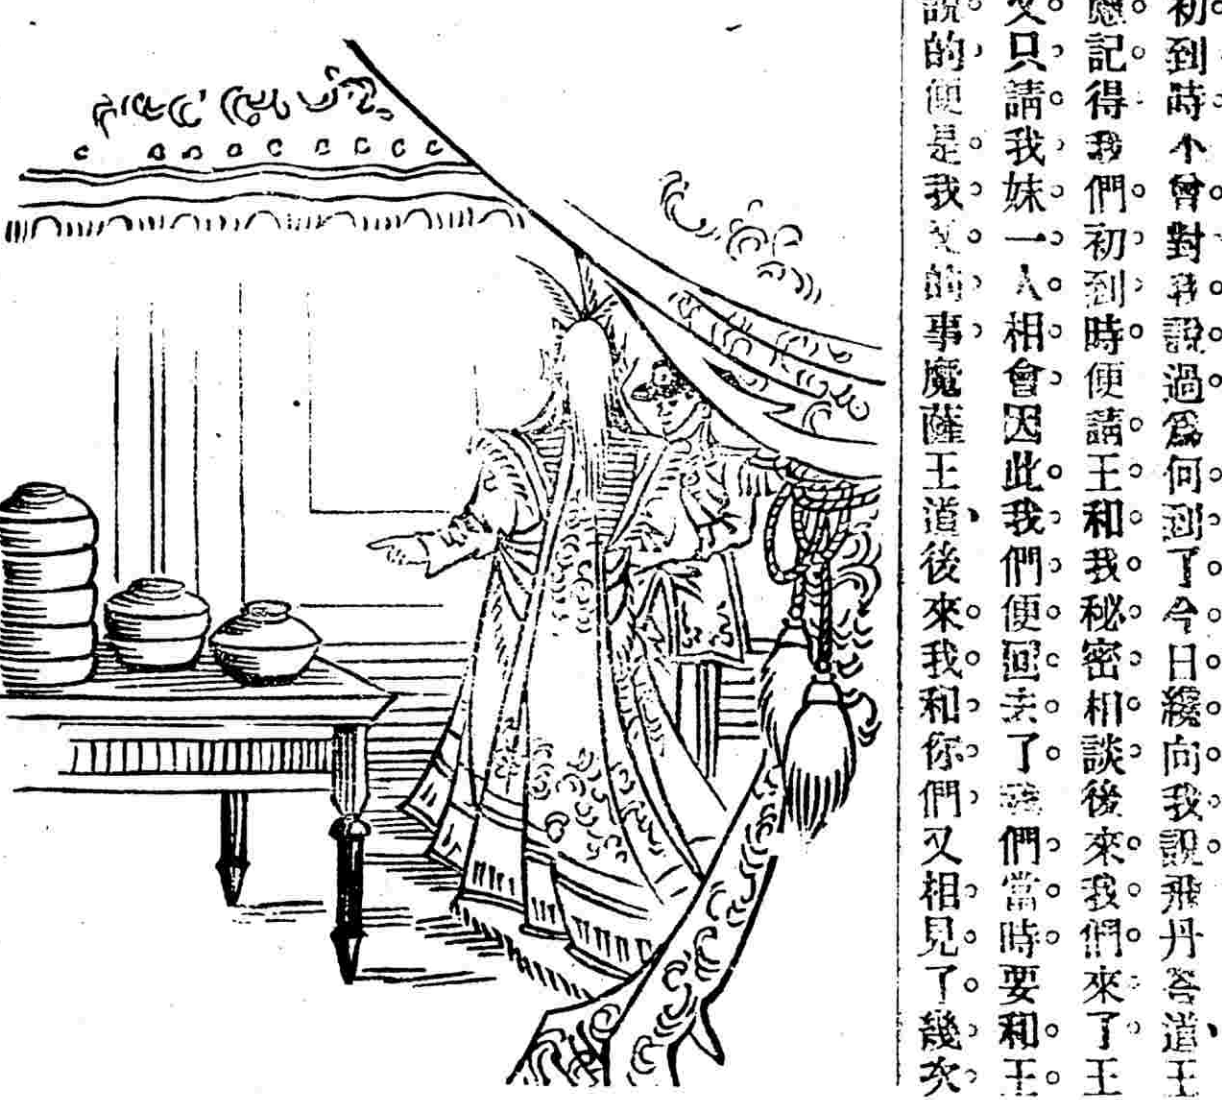 初到時不曾對我說過爲何到了今日纔向我說飛丹答道、王
應記得我們初到時便請王和我秘密相談後來我們來了王
又只請我妹一人相會因此我們便回去了 們當時要和王
說的便是我父的事魔薩王道、後來我和你們又相見了幾次